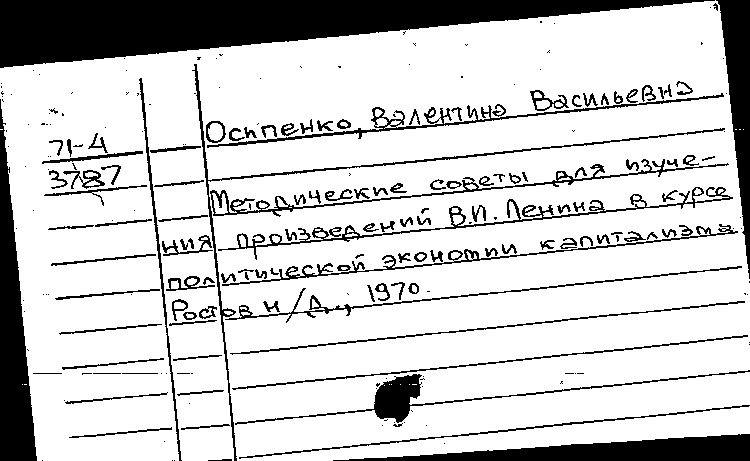 71-4
3787
Осипенко, Валентина Васильевна
Методические советы для изуче-
ния произведений В.И. Ленина в курсе
политической экономии капитализма
Ростов н/Д., 1970.